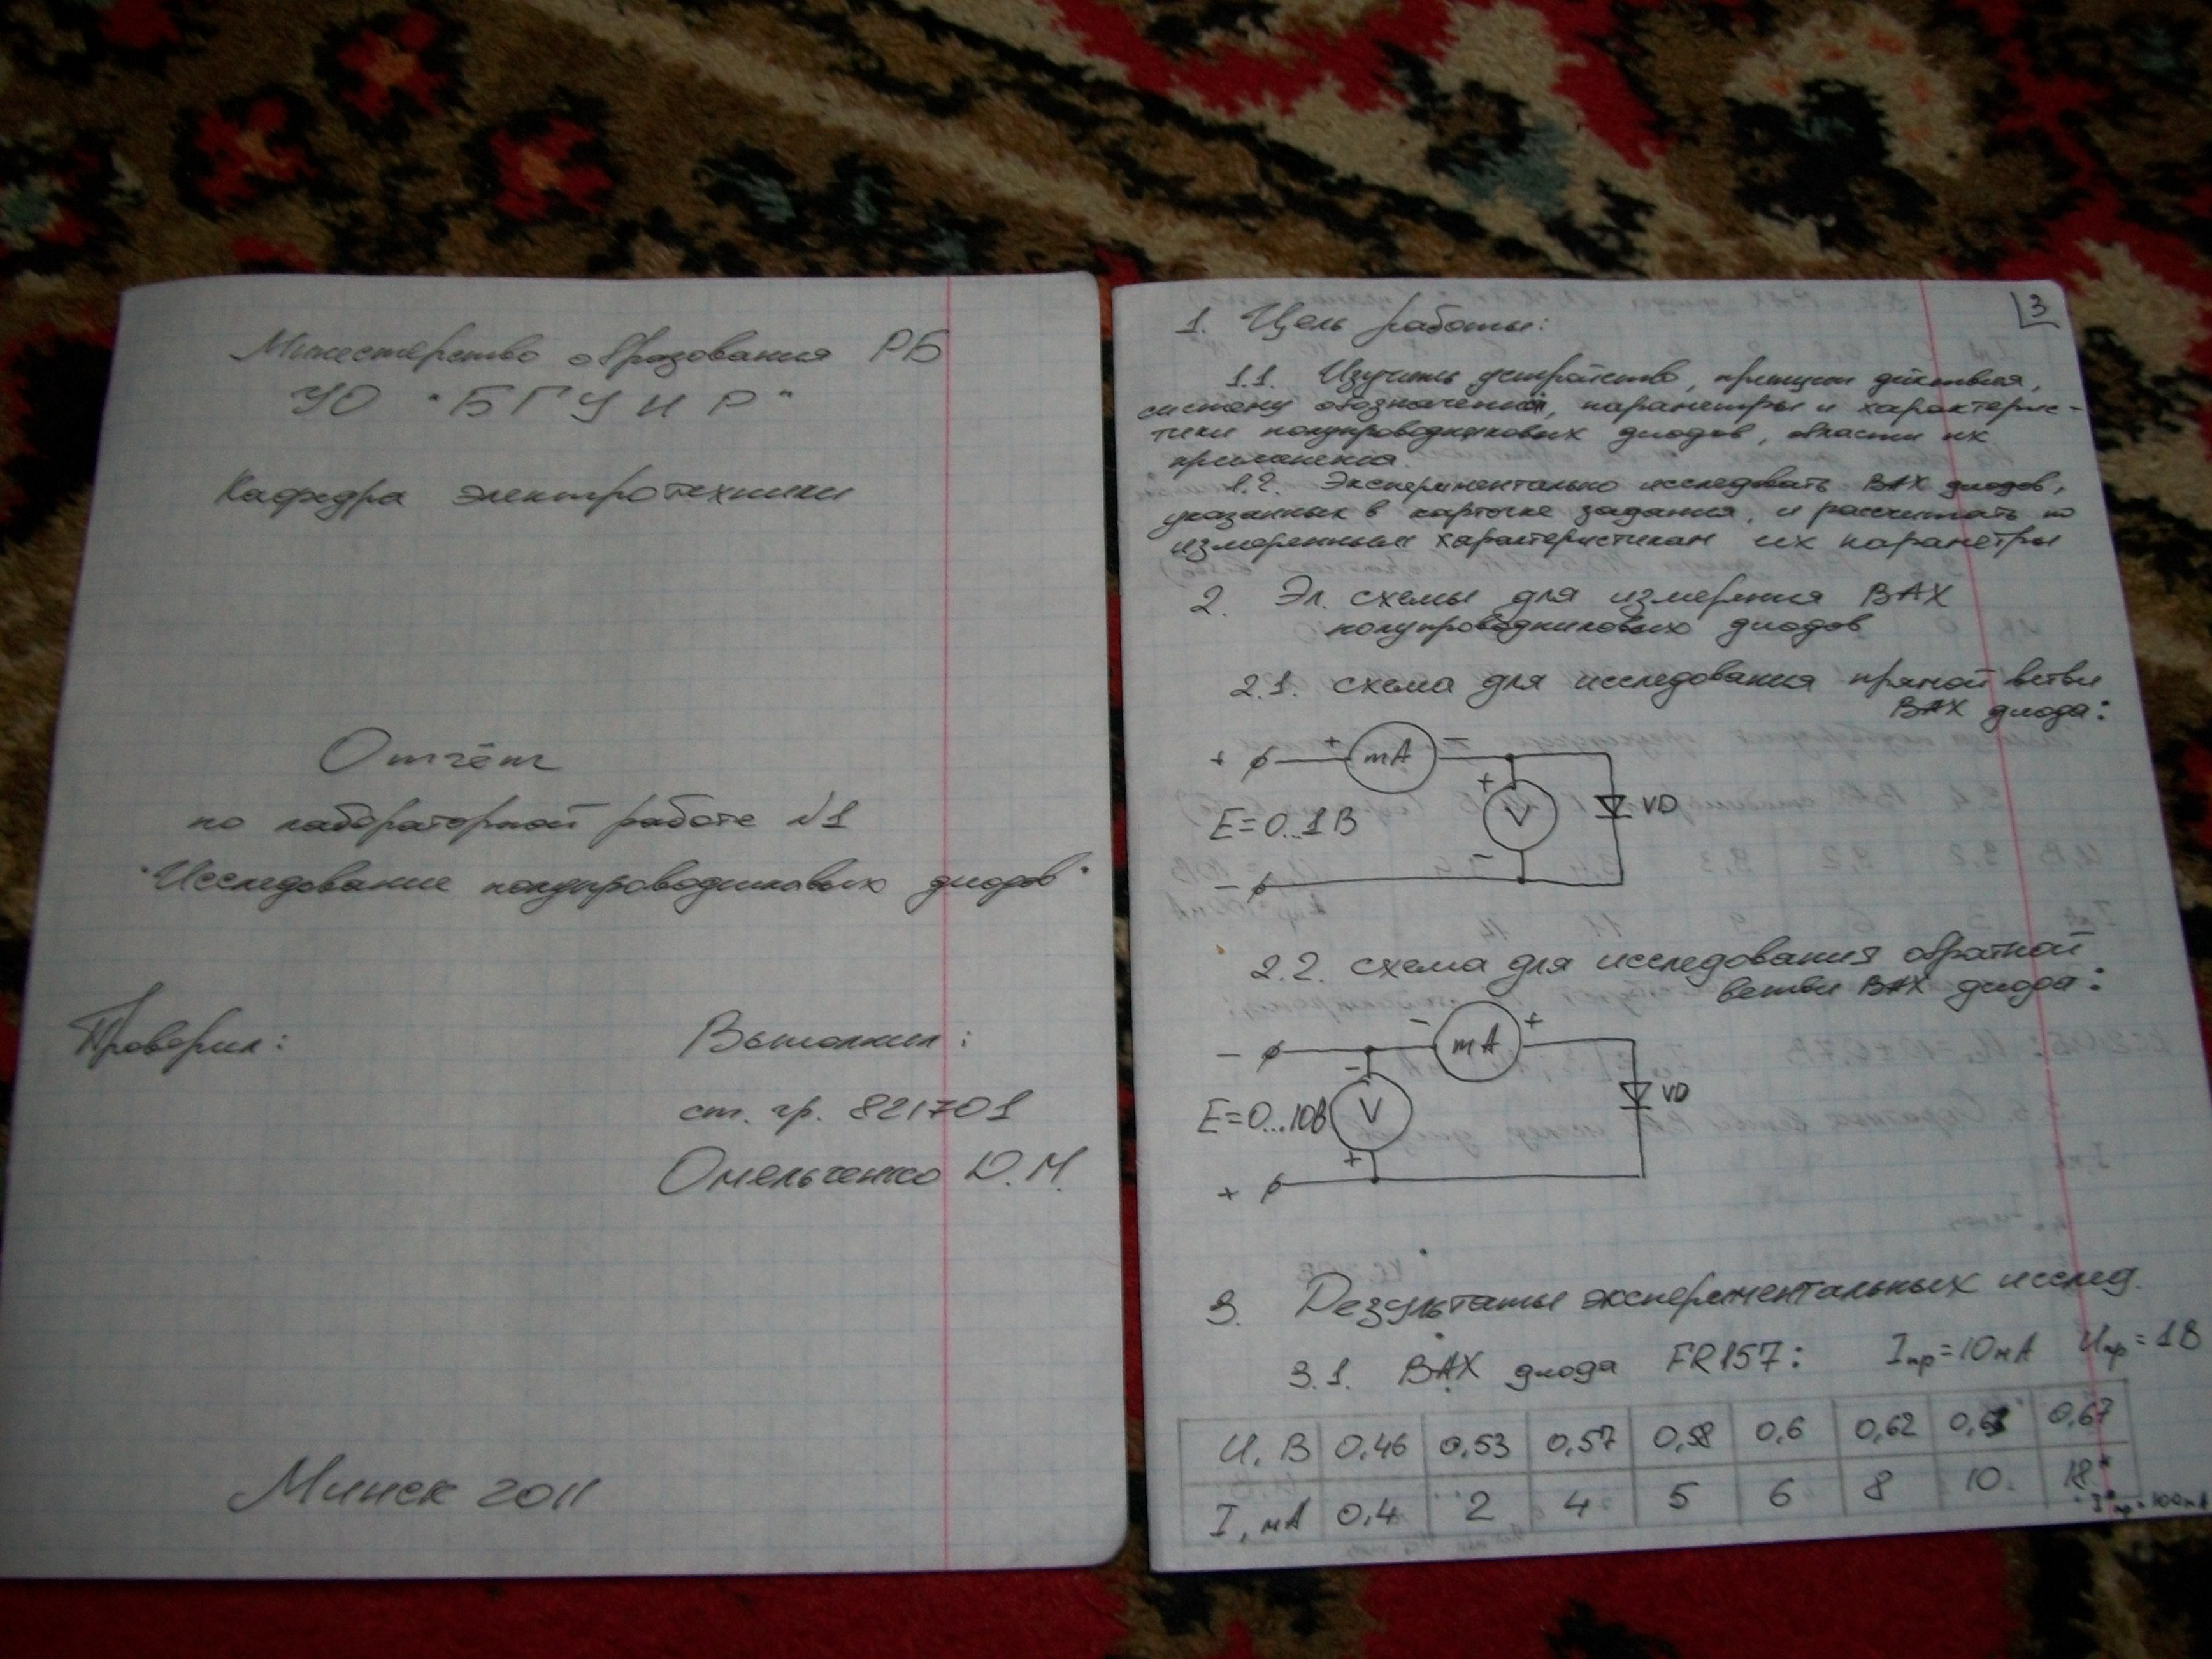 Министерство образования РБ
УО "БГУИР"
Кафедра электротехники
Отчёт
по лабораторной работе №1
"Исследование полупроводниковых диодов"
Проверил:
Выполнил:
ст. гр. 821701
Омельченко Д.М.
Минск 2011
3
1. Цель работы:
1.1. Изучить устройство, принцип действия,
систему обозначений, параметры и характерис-
тики полупроводниковых диодов, области их
применения.
1.2. Экспериментально исследовать ВАХ диодов,
указанных в карточке задания, и рассчитать по
измеренным характеристикам их параметры
2. Эл. схемы для измерения ВАХ
полупроводниковых диодов
2.1. схема для исследования прямой ветви
ВАХ диода:
+ + mA −
+ V VD
E=0..1В
− −
2.2. схема для исследования обратной
ветви ВАХ диода:
− − mA +
− V VD
E=0...10В
+ +
3. Результаты экспериментальных исслед.
3.1. ВАХ диода FR157: Iпр=10мА Uпр=1В
U, В 0,46 0,53 0,57 0,58 0,6 0,62 0,67
I, мА 0,4 2 4 5 6 8 10 18*
* Iпр=100мА